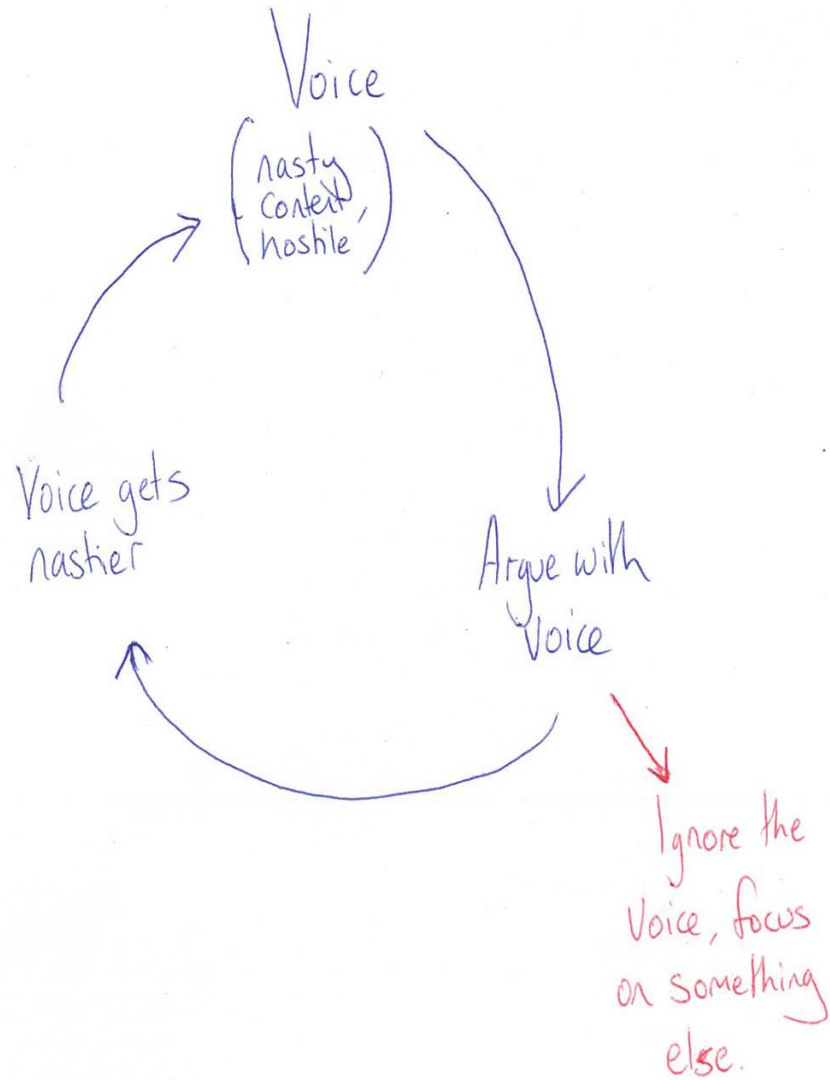 Voice
(nasty
content,
hostile)
Argue with
Voice
Voice gets
nastier
Ignore the
Voice, focus
on something
else.